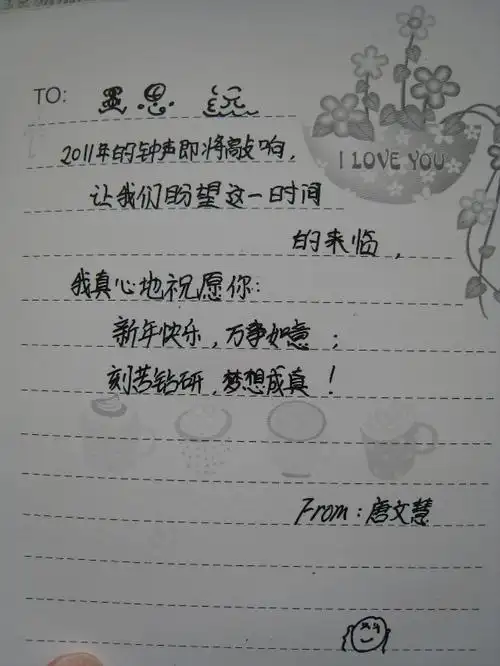 TO: 墨思远
I LOVE YOU
2011年的钟声即将敲响,
让我们盼望这一时间
的来临,
我真心地祝愿你:
新年快乐,万事如意;
刻苦钻研,梦想成真!
From:唐文慧